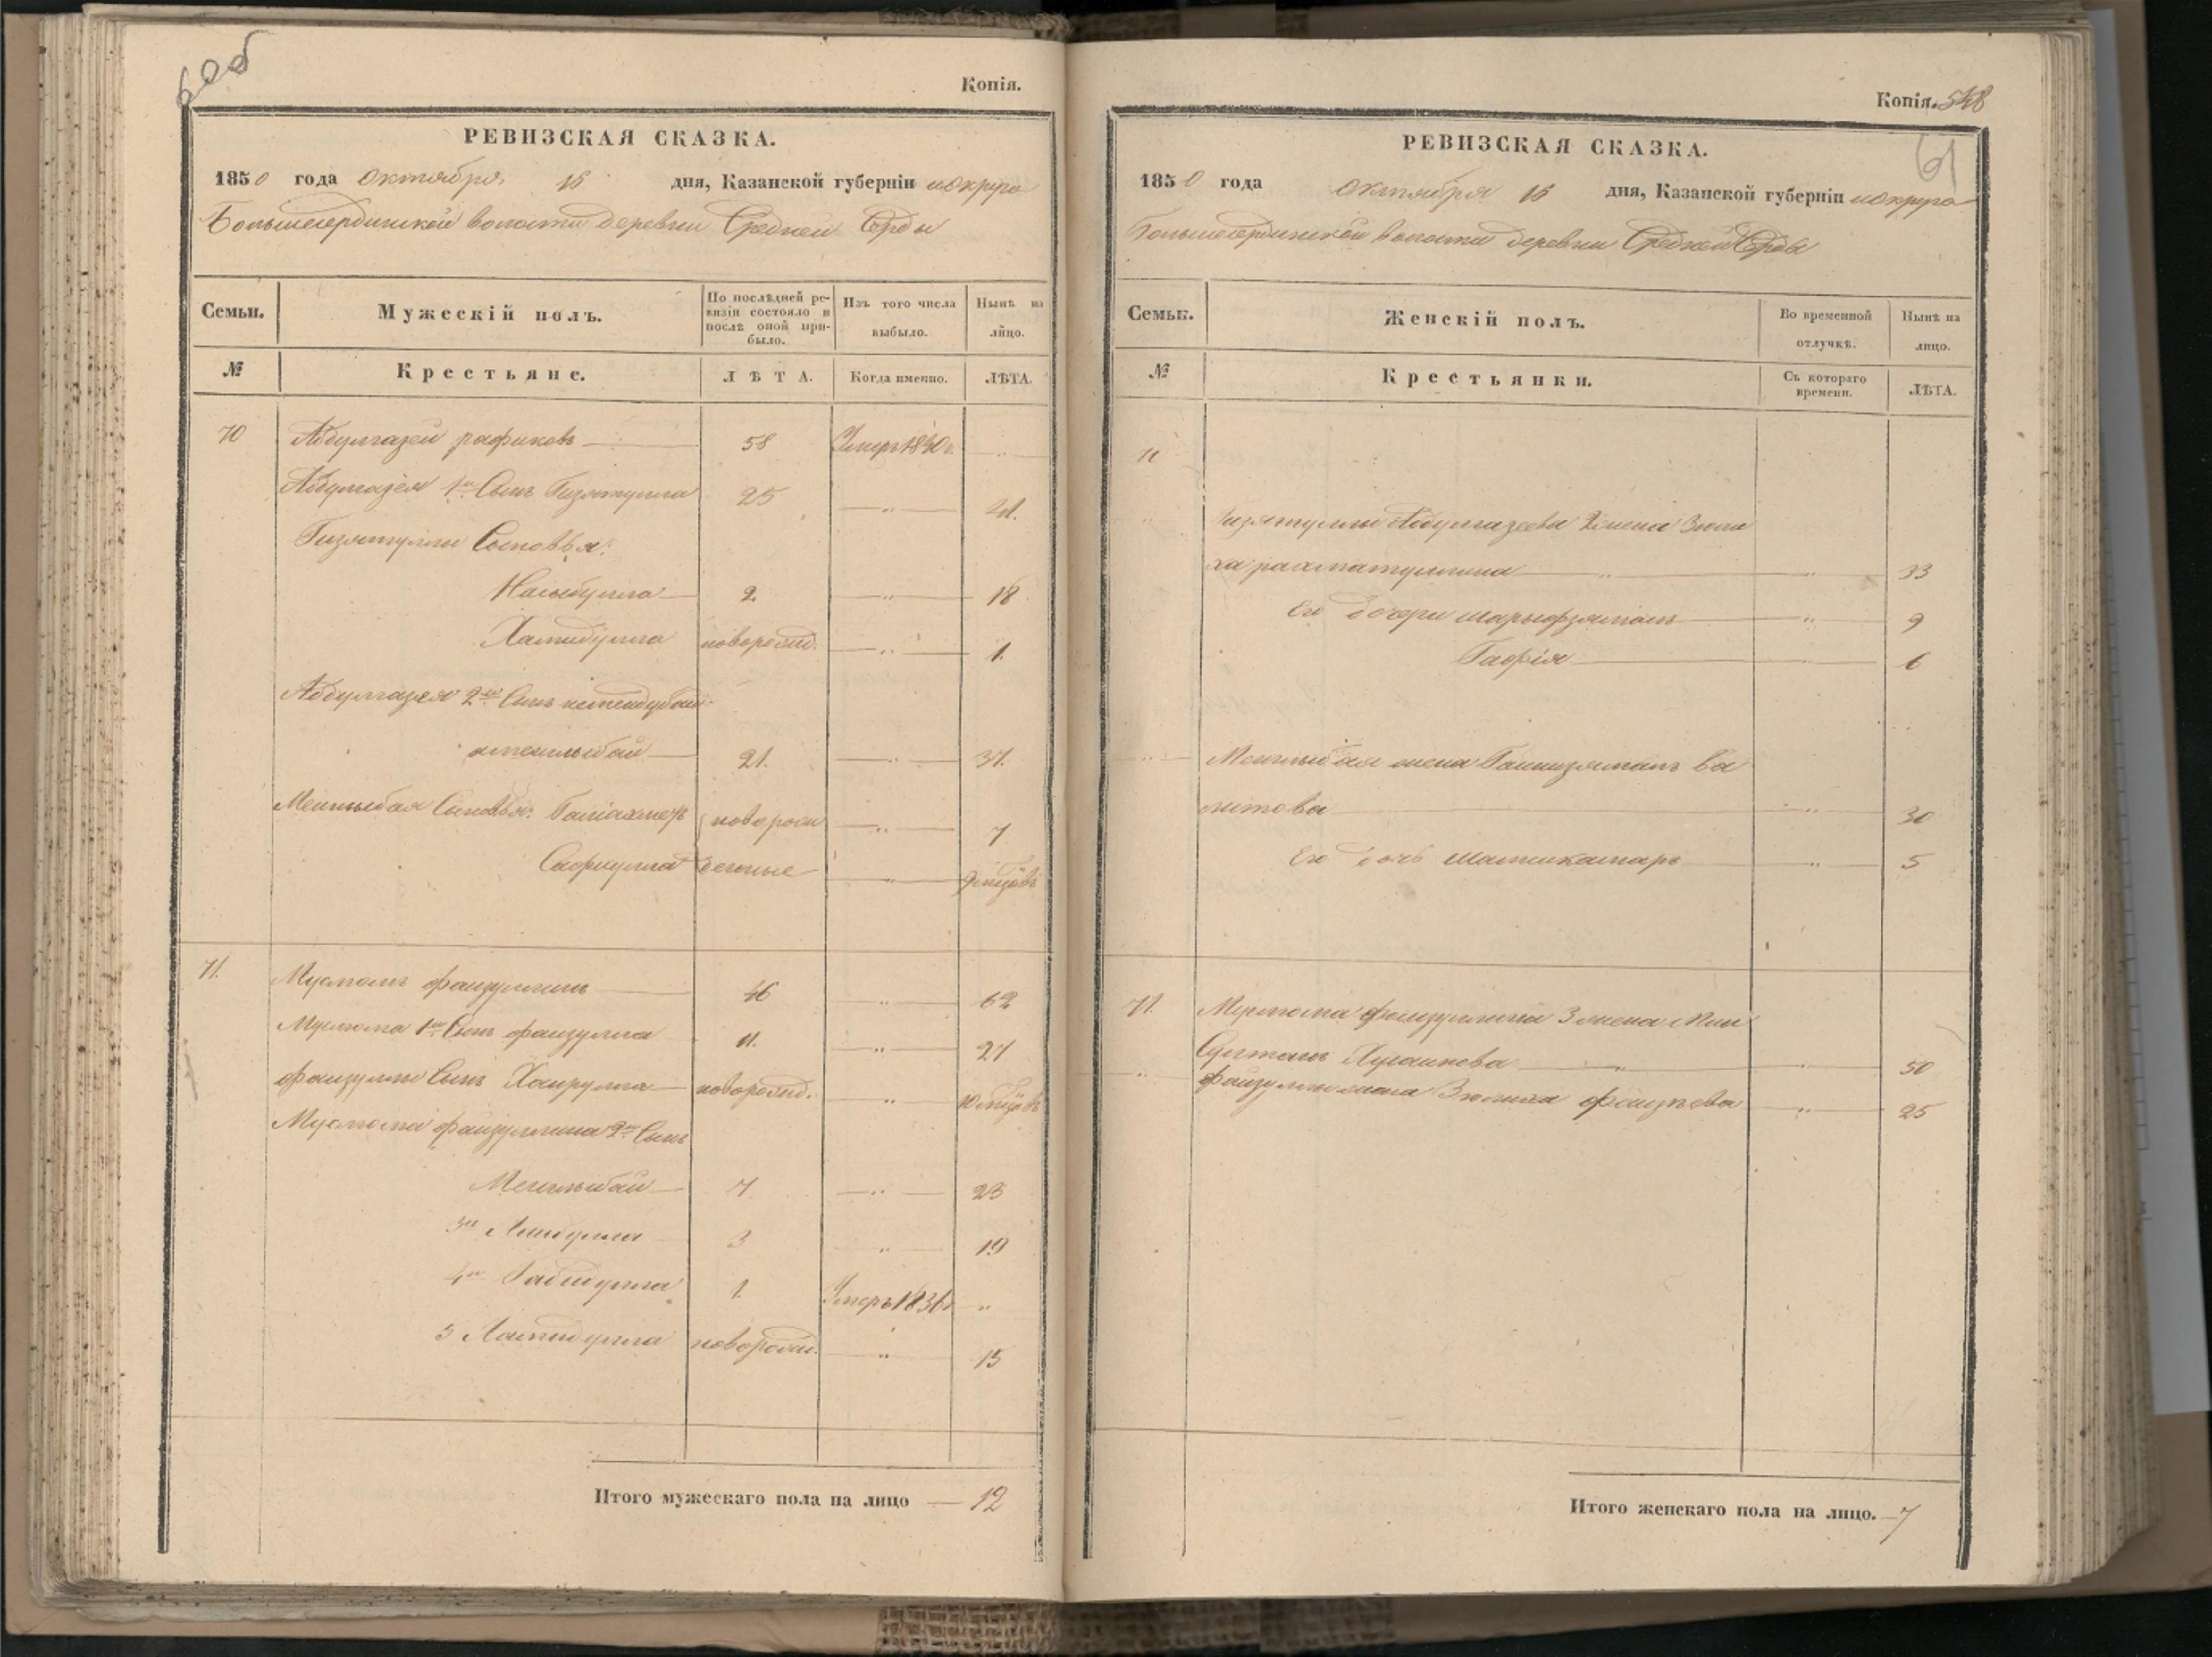 60об
Копія.
РЕВИЗСКАЯ СКАЗКА.
1850 года октября 16 дня, Казанской губерніи и округа
Большеердинской волости деревни Средней Ерды
Семьи.
Мужескій полъ.
По послѣдней ре-
визіи состояло и
послѣ оной при-
было.
Изъ того числа
выбыло.
Нынѣ на
лицо.
№
Крестьяне.
ЛѢТА.
Когда именно.
ЛѢТА.
70 Абдулгазей рафиковъ 58 Умеръ 1840 г.
Абдулгазея 1й Сынъ Гизятулла 25 „ 41.
Гизятуллы Сыновья:
Насыбулла 2. „ 18
Хамидулла новорожд. „ 1.
Абдулгазея 2й Сынъ
аменлыбай 21. „ 37.
Менлыбая Сыновья: Галіахметъ новорож „ 7
Сафиулла денные „ 9 мцовъ
71. Муслюмъ файзуллинъ 46 „ 62
Муслюма 1й Сынъ файзулла 11. „ 27
файзуллы Сынъ Хайрулла новорожд. „ 10 мцовъ
Муслюма файзуллина 2й Сынъ
Менлыбай 7. „ 23
3й 3 „ 19
4й 1. Умеръ 1836 г. „
5 новорожд. „ 15
Итого мужескаго пола на лицо — 12
Копія. 548
61
РЕВИЗСКАЯ СКАЗКА.
1850 года октября 16 дня, Казанской губерніи и округа
Большеердинской волости деревни Средней Ерды
Семьи.
Женскій полъ.
Во временной
отлучкѣ.
Нынѣ на
лицо.
№
Крестьянки.
Съ котораго
времени.
ЛѢТА.
Гизятуллы Абдулгазеева жена Зюли
ха рахматуллина „ 33
Его дочери шарыфзямалъ „ 9
Гафія „ 6
Менлыбая жена Ганнизямалъ ва
литова „ 30
Его дочь шамсикамаръ „ 5
71. Муслюма файзуллина 3 жена Мин
Султанъ „ 50
файзуллы жена Зюлиха „ 25
Итого женскаго пола на лицо. — 7